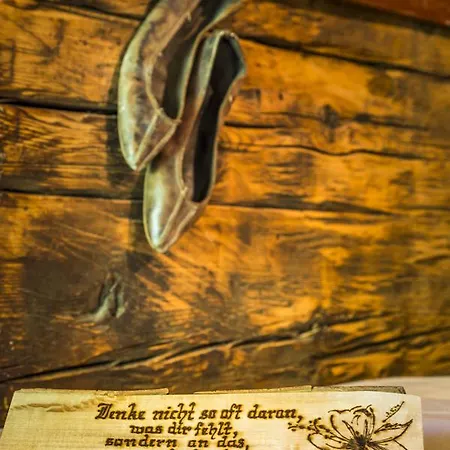 Denke nicht so oft daran,
was dir fehlt,
sondern an das,